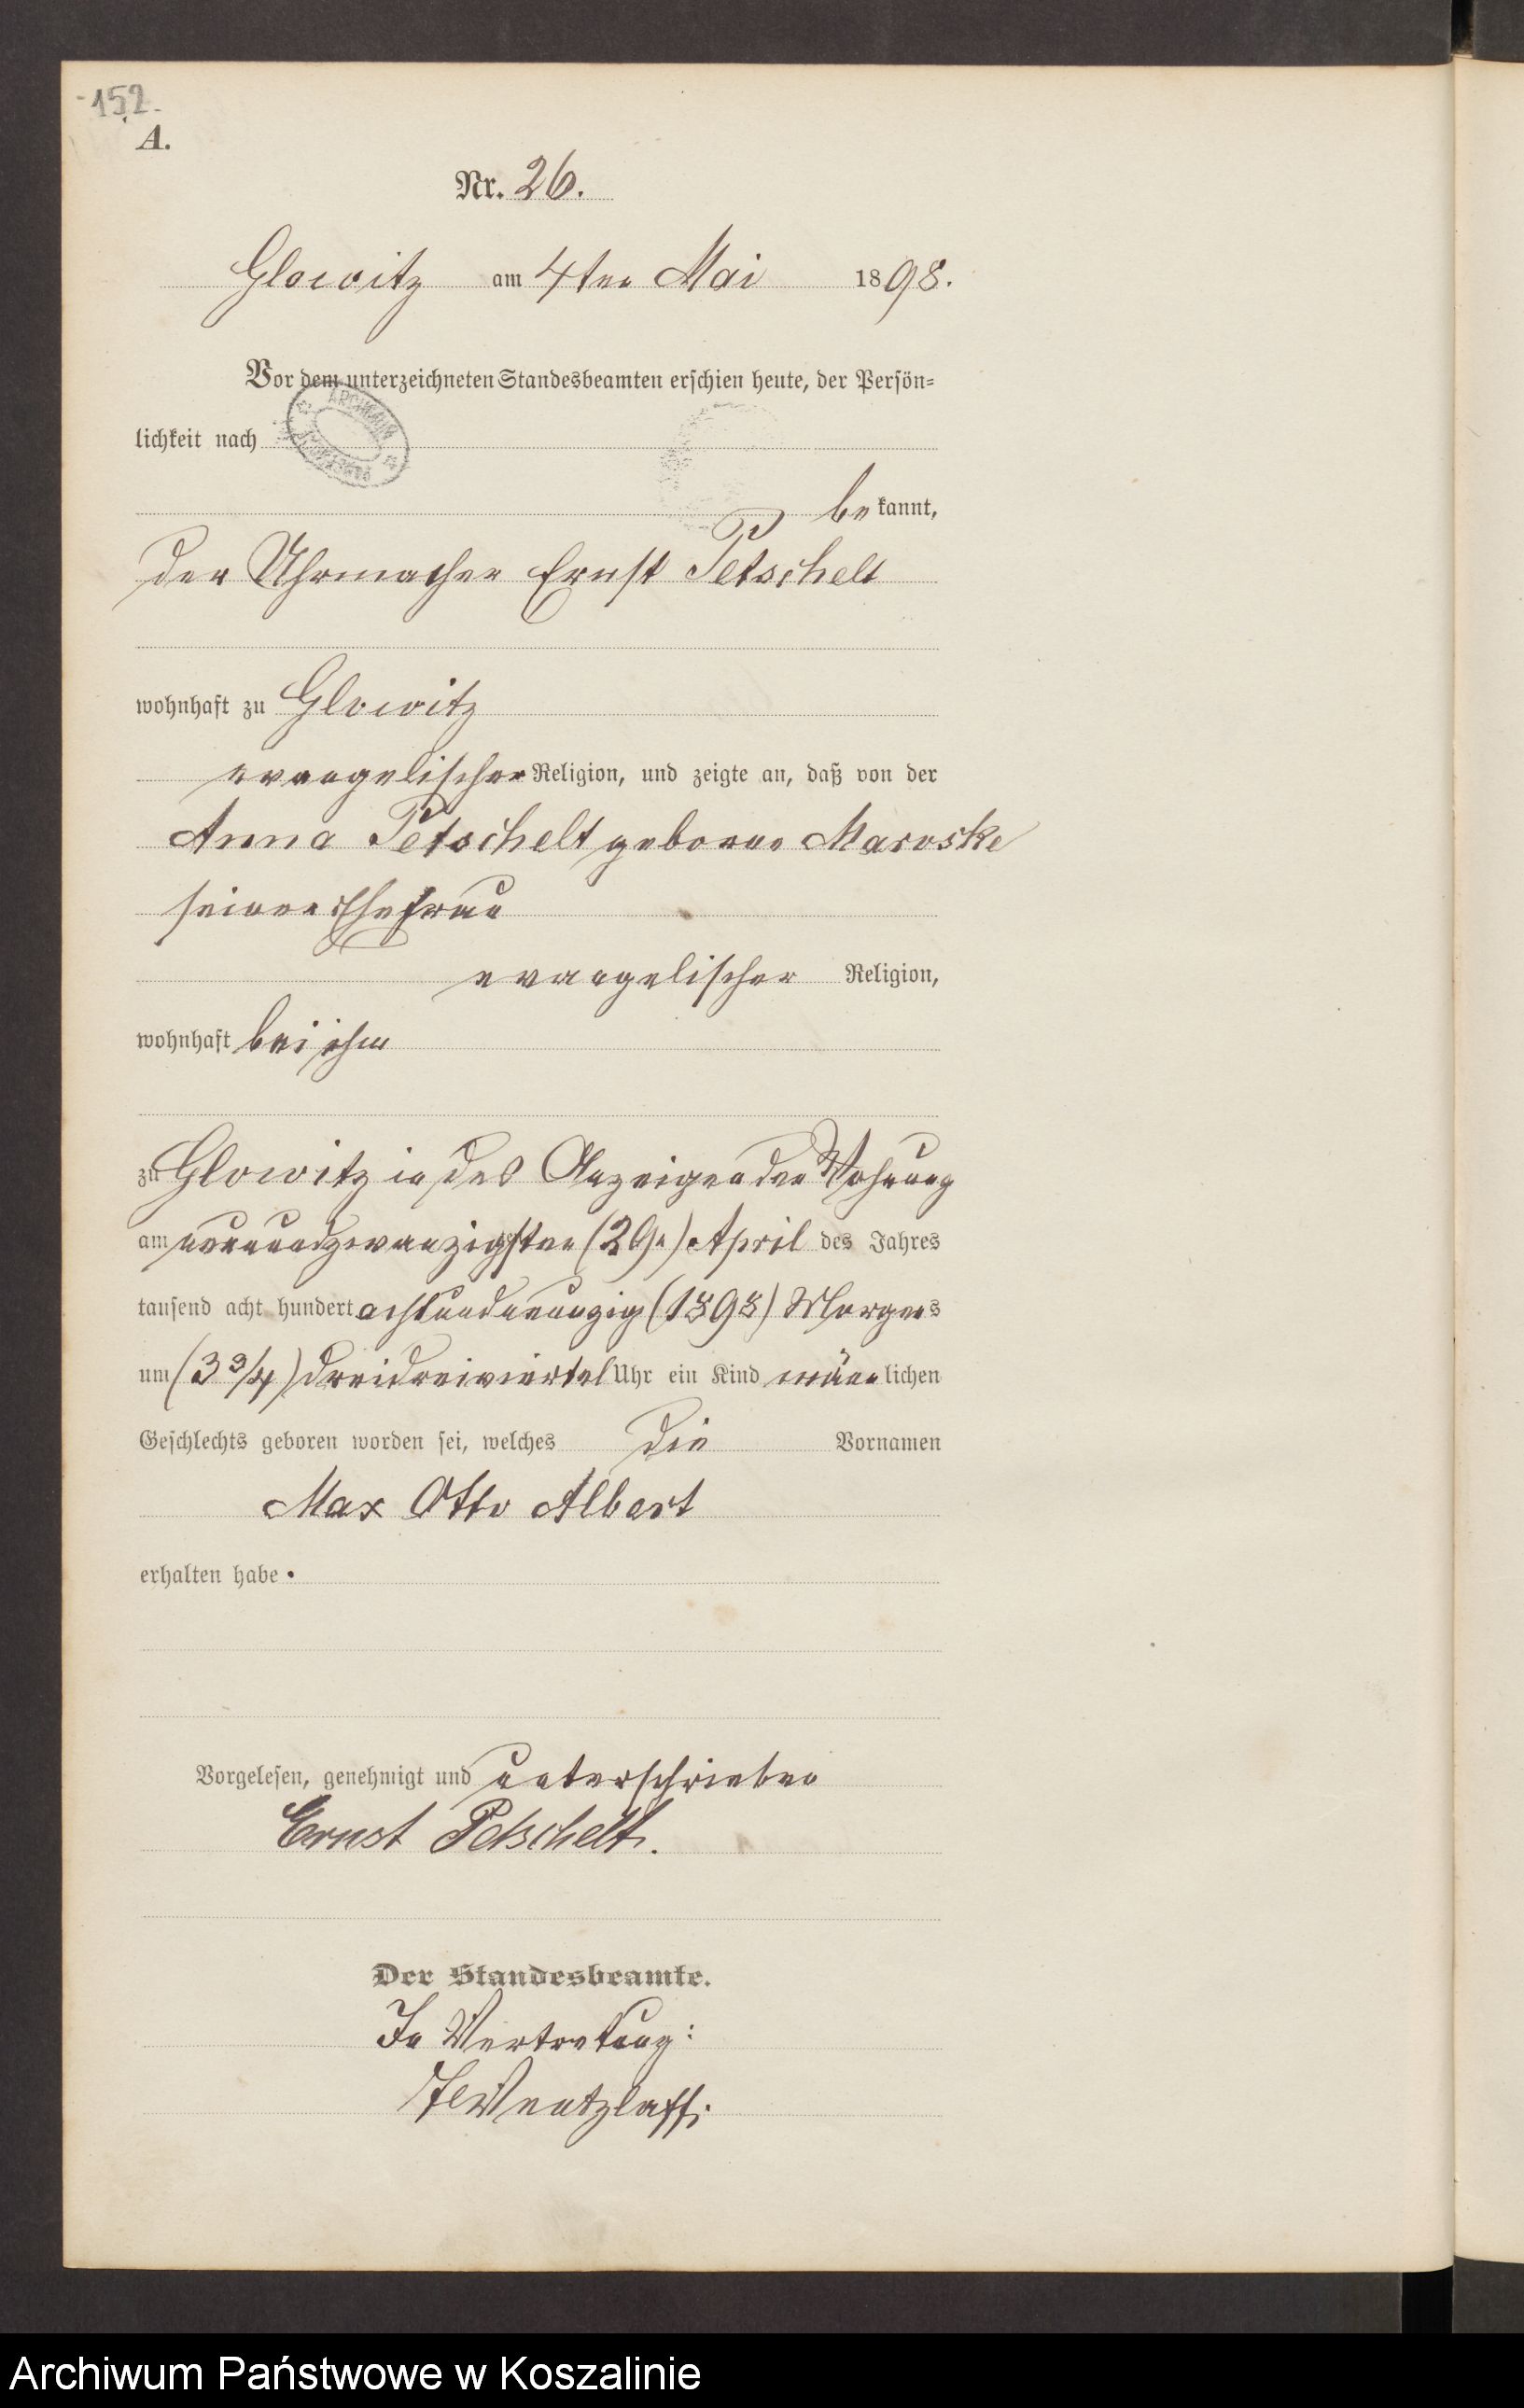 152.
A.
Nr. 26.
Glowitz am 4ten Mai 1898.
Vor dem unterzeichneten Standesbeamten erschien heute, der Persön=
lichkeit nach
bekannt,
der Uhrmacher Ernst Petschelt
wohnhaft zu Glowitz
evangelischer Religion, und zeigte an, daß von der
Anna Petschelt geborne Maroske
seiner Ehefrau
evangelischer Religion,
wohnhaft bei ihm
zu Glowitz in des Anzeigenden Wohnung
am neunundzwanzigsten (29n) April des Jahres
tausend acht hundert achtundneunzig (1898) Morgens
um (3 3/4) dreidreiviertel Uhr ein Kind männlichen
Geschlechts geboren worden sei, welches die Vornamen
Max Otto Albert
erhalten habe.
Vorgelesen, genehmigt und unterschrieben
Ernst Petschelt.
Der Standesbeamte.
In Vertretung:
Wentzlaff.
Archiwum Państwowe w Koszalinie